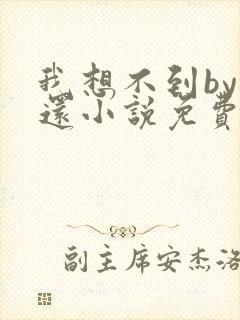 我想不到by
還小說免費
副主席安杰洛